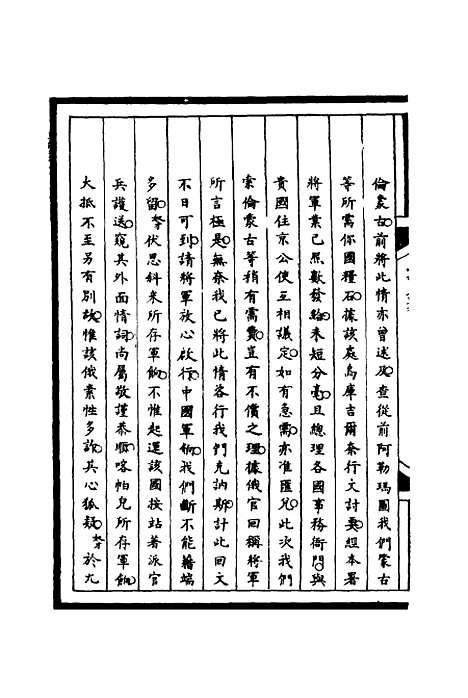 倫蒙古前將此情亦曾述及查從前阿勒瑪圖我們蒙古
等所需你國糧石據該處烏庫吉爾奈行文討要經本署
將軍業已照數發給未短分毫且總理各國事務衙門與
貴國住京公使互相議定如有急需亦准匯兌此次我們
索倫蒙古等稍有需費豈有不償之理據俄官回稱將軍
所言極是無奈我已將此情咨行我們克訥斯計此回文
不日可到請將軍放心啟行中國軍餉我們斷不能藉端
多留奴才伏思斜米所存軍餉不惟起運該國按站著派官
兵護送窺其外面情詞尚屬敬謹恭順喀帕兒所存軍餉
大抵不至另有別故惟該俄素性多詐其心狐疑奴才於九